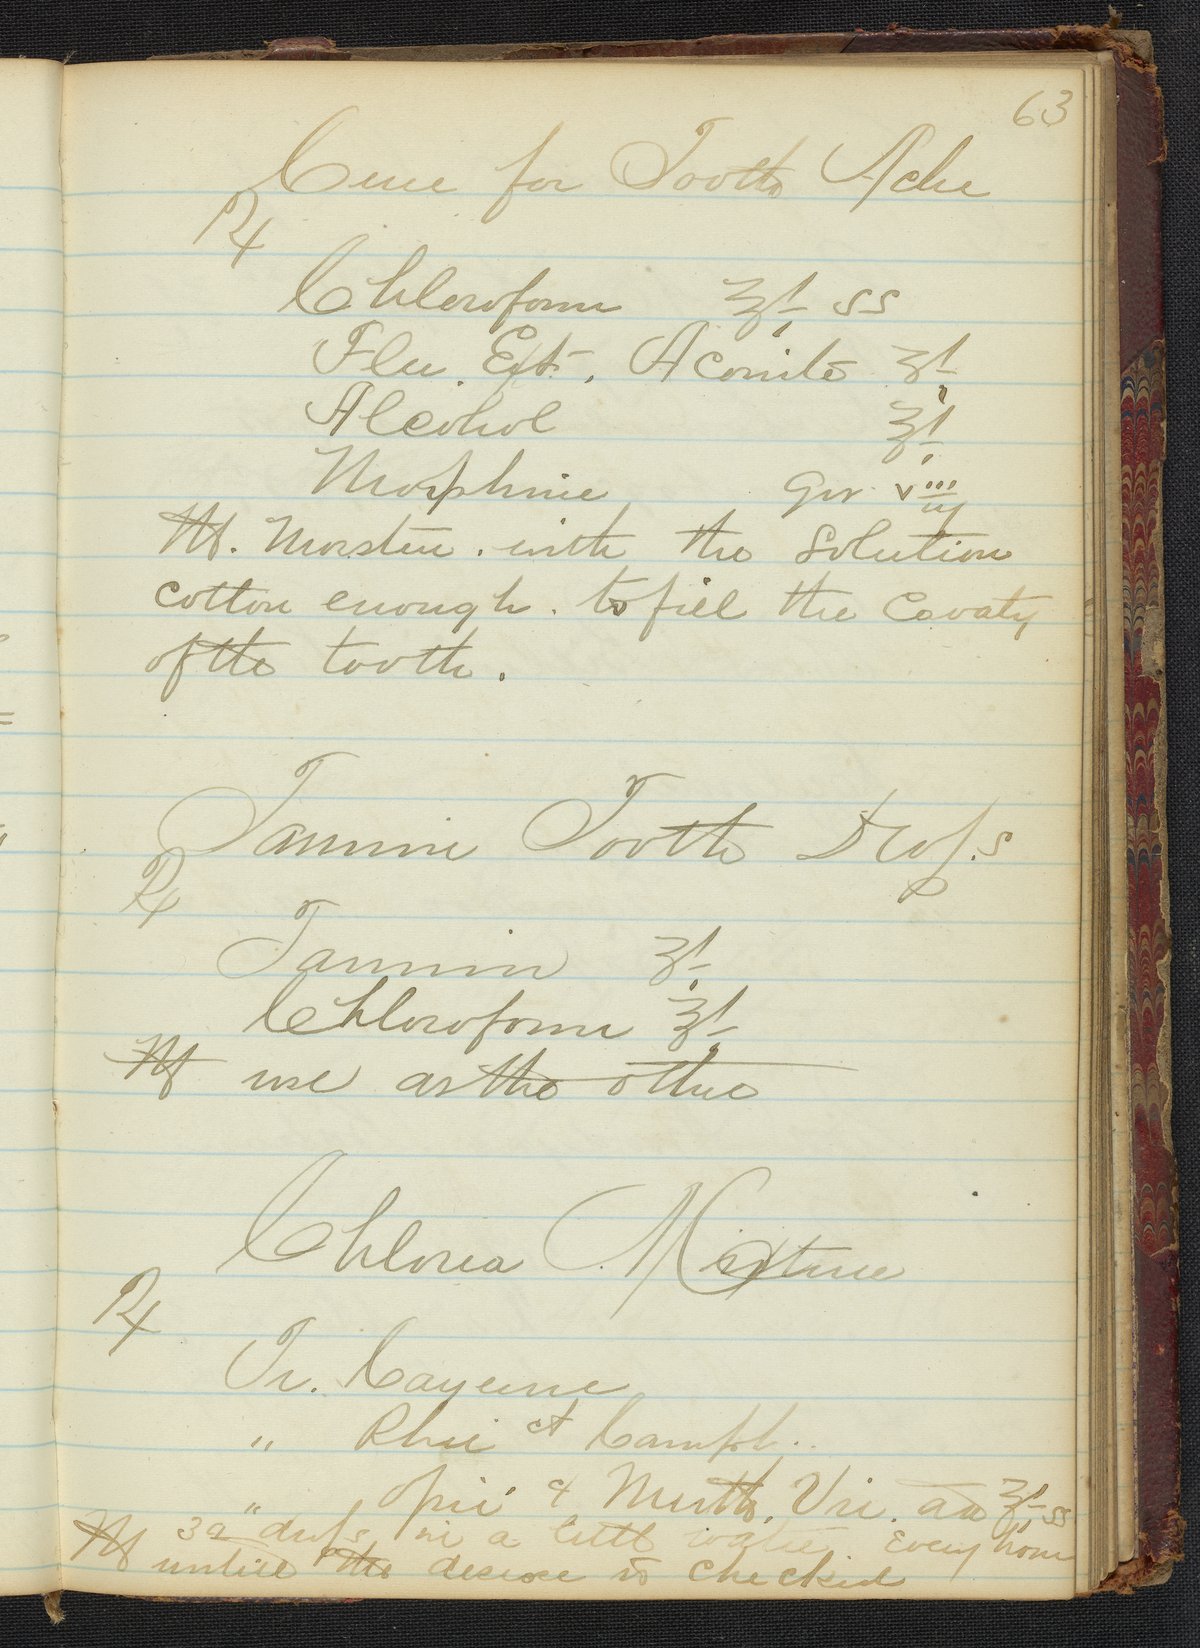 63
Cure for Tooth Ache
℞
Chloroform ℥i ss
Flu. Ext. Aconite ℥i
Alcohol ℥i
Morphine grs viii
M. Morsten with the Solution
cotton enough. to fill the Cavaty
of the tooth.
Tannin Tooth Drops
℞
Tannin ℥i
Chloroform ℥i
M use as the other
Chlorea Mixture
℞
Tr. Cayenne
" Rhei et Camph.
" Opii & Menth. Viri. aa ℥i ss
M 30 drops in a little water Every hour
untill the desease is checked